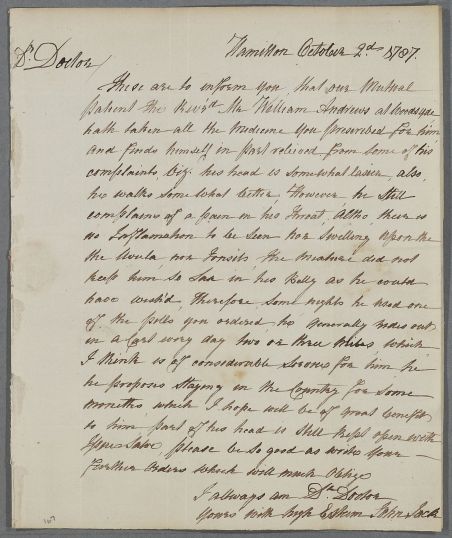 Hamilton October 2d 1787.
Dr. Doctor
These are to inform you, that our Mutual
patient the Revrd. Mr. William Andrews at Woodsyde
hath taken all the Medicine you prescrived for him,
and finds himself in part relieved from some of his
complaints viz: his head is somewhat easier, also,
he walks somewhat better, However, he still
complains of a pain in his throat, Altho, there is
no Inflamation to be seen nor Swelling upon the
the Uvula nor Tonsils the Mixture did not
keep him so Lax in his Belly as he could
have wish'd, therefore some nights he used one
of the pills you ordered, he generally rides out
in a Cart every day two or three Miles which
I think is of considerable for him he
he proposes staying in the Country for some
months which I hope will be of great benefit
to him, part of his head is still kept open with
Issue Salve, please be so good as write your
further Orders which will much Oblige
I always am Dr. Doctor
Yours with high Esteem John Jack